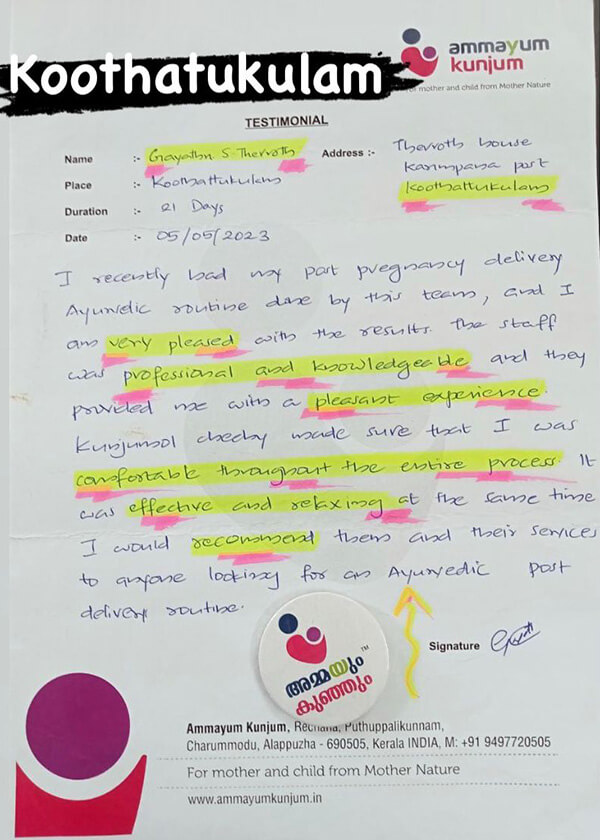 Koothatukulam
ammayum
kunjum
For mother and child from Mother Nature
TESTIMONIAL
Name :- Gayathri S Therroth
Address :- Therroth house
Karimpana post
Koothattukulam
Place :- Koothattukulam
Duration :- 21 Days
Date :- 05/05/2023
I recently had my post pregnancy delivery
Ayurvedic routine done by this team, and I
am very pleased with the results. The staff
was professional and knowledgeable and they
provided me with a pleasant experience.
Kunjumol chechy made sure that I was
comfortable throughout the entire process. It
was effective and relaxing at the same time
I would recommend them and their services
to anyone looking for an Ayurvedic post
delivery routine.
Signature
TM
അമ്മയും
കുഞ്ഞും
Ammayum Kunjum, Rechana, Puthuppalikunnam,
Charummodu, Alappuzha - 690505, Kerala INDIA, M: +91 9497720505
For mother and child from Mother Nature
www.ammayumkunjum.in